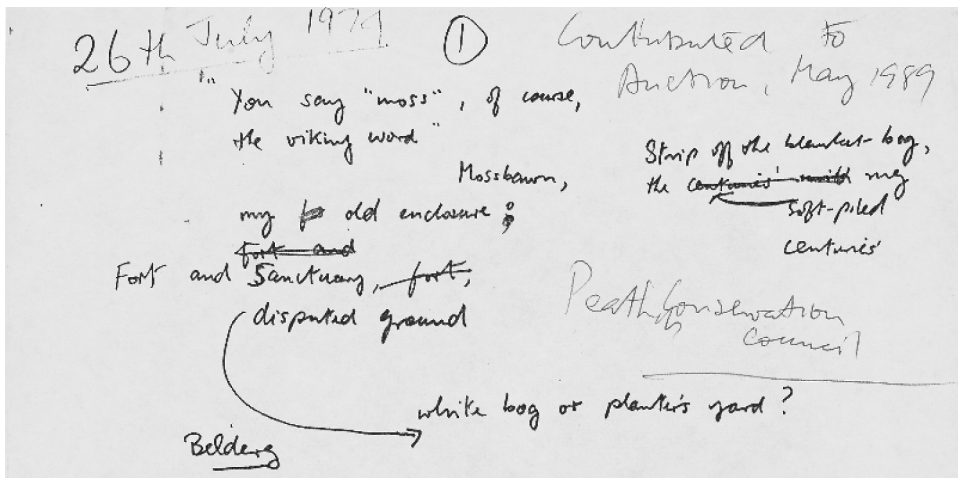 26th July 1974
①
Contributed to
Auction, May 1989
" "You say "moss", of course,
the viking word"
Mossbawn,
my old enclosure;
fort and
Fort and Sanctuary, fort,
disputed ground
Strip off the blanket-bog,
the centuries' my
soft-piled
centuries'
Conservation
Council
white bog or planter's yard?
Belderg